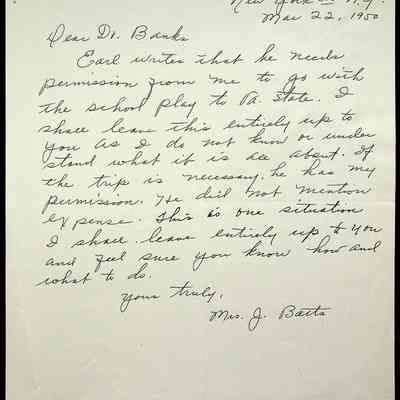 New York N.Y.
Mar 22, 1950
Dear Dr. Banks
Earl writes that he needs
permission from me to go with
the school play to Va. State. I
shall leave this entirely up to
you as I do not know or under
stand what it is all about. If
the trip is necessary, he has my
permission. He did not mention
expense. This is one situation
I shall leave entirely up to you
and feel sure you know how and
what to do.
Yours truly,
Mrs. J. Batts